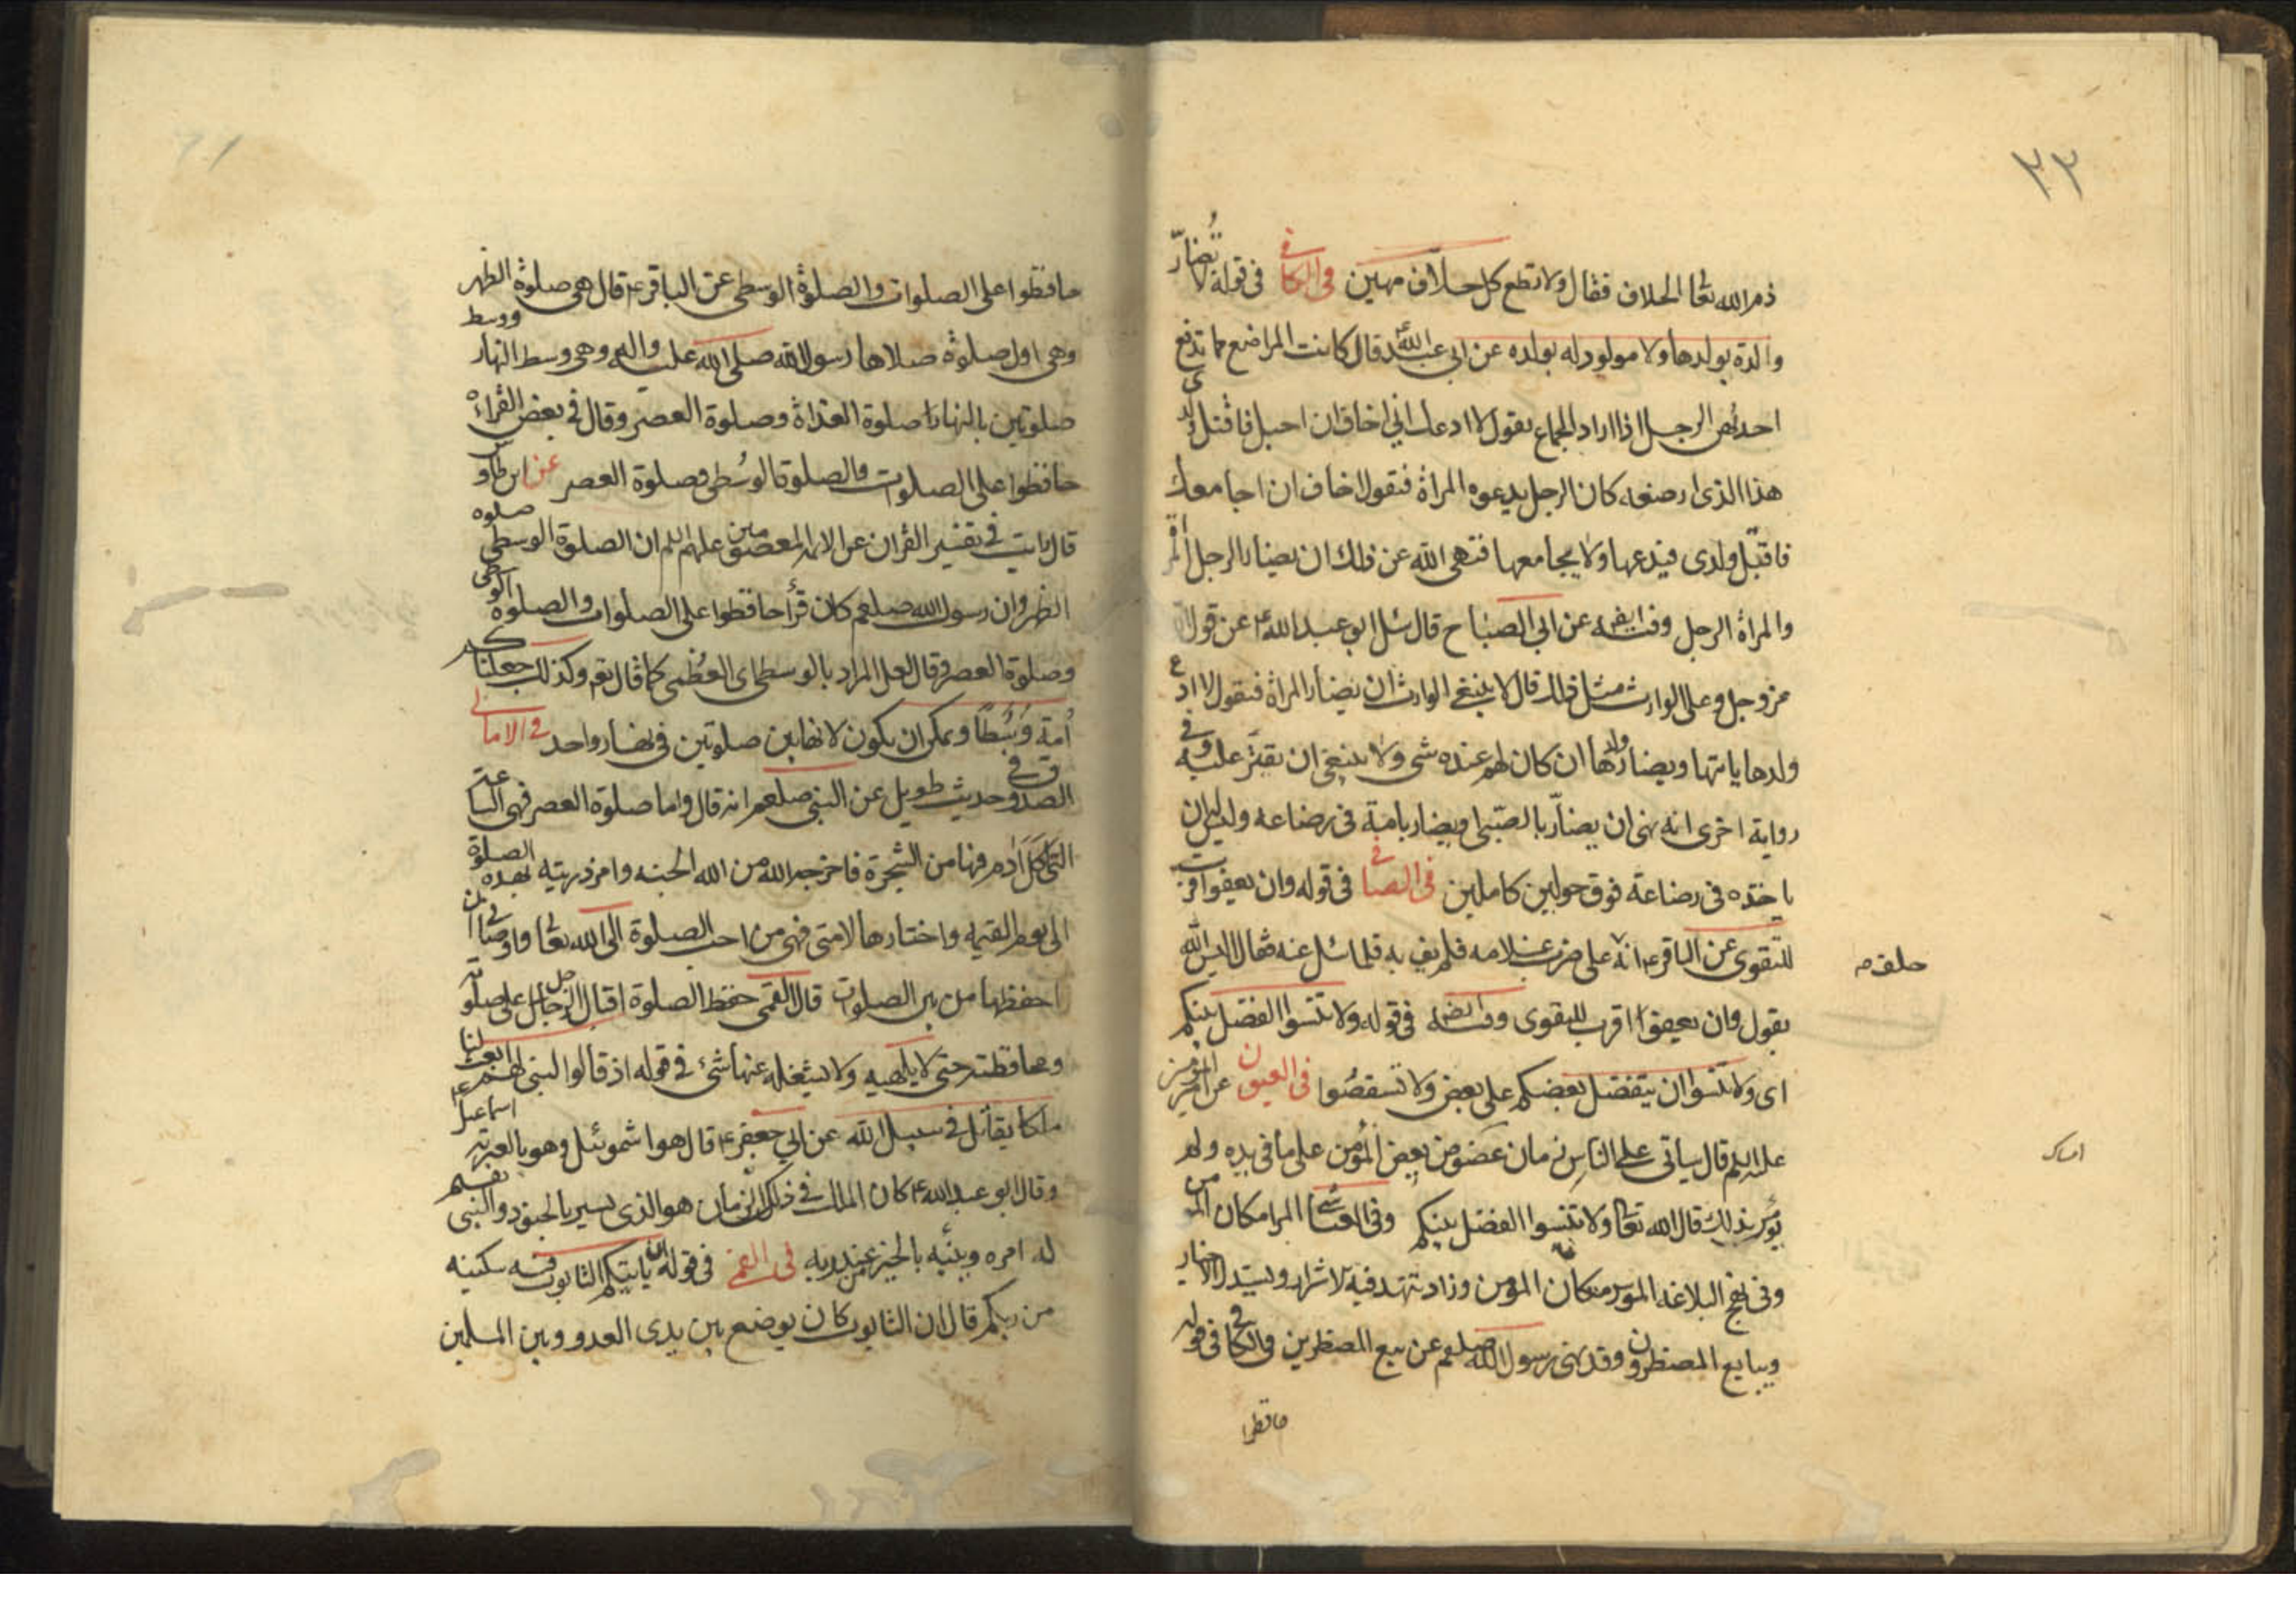 ٣٣
ذم الله تعا الحلاف فقال ولا تطع كل حلاف مهين في الكافي في قوله لا تُضارّ
والدة بولدها ولا مولود له بولده عن ابي عبد الله ع قال كانت المراضع مما تدفع
احديهن الرجل اذا اراد الجماع تقول لا ادعك اني اخاف ان احبل فاقتل ولدى
هذا الذى ارضعه كان الرجل يدعوه المراة فتقول اخاف ان اجامعك
فاقتل ولدى فيدعها ولا يجامعها فنهى الله عن ذلك ان يضار الرجل المر
والمراة الرجل وفيه ايضه عن ابي الصباح قال سئل ابو عبد الله ع عن قول الله
عز وجل وعلى الوارث مثل ذلك قال لا ينبغي الوارث ان يضار المراة فيقول لا ادع
ولدها ياتيها ويضار ولدها ان كان لهم عنده شى ولا ينبغي ان يقتر عليه وفي
رواية اخرى انه نهى ان يضارّ بالصبى او يضار بامه في رضاعه وليس لها ان
ياخذه في رضاعة فوق حولين كاملين في الصافي في قوله وان تعفوا اقرب
للتقوى عن الباقر ع انه على ضرب غلامه فلم يف به فلما سئل عنه فقال اليس الله
حلف م
يقول وان تعفوا اقرب للتقوى وفيه ايضه في قوله ولا تنسوا الفضل بينكم
اى ولا تنسوا ان يتفضل بعضكم على بعض ولا تستقصوا في العيون عن امير المومنين
عليه السلم قال سياتى على الناس زمان عضوض يعض المؤمن على ما فى يده ولم
امساك
يؤمر بذلك قال الله تعا ولا تنسوا الفضل بينكم وفي العياشي المرا مكان المو من
وفي نهج البلاغه الموسر مكان المؤمن وزاد تنهد فيه الاشرار ويستذل الاخيار
ويبايع المضطرون وقد نهى رسول الله صلعم عن بيع المضطرين في الكافي في قوله
حافظوا
حافظوا على الصلوات والصلوة الوسطى عن الباقر ع قال هى صلوة الظهر
وهى اول صلوة صلاها رسول الله صلى الله عليه واله وهى وسط النهار ووسط
صلوتين بالنهار صلوة الغداة وصلوة العصر وقال في بعض القراءه
حافظوا على الصلوات والصلوة الوسُطى وصلوة العصر عن ابن طاوس
قال رايت في تفسير القران عن الائمه المعصومين عليهم السلم ان الصلوة الوسطى صلوه
الظهر وان رسول الله صلعم كان قرأ حافظوا على الصلوات والصلوه الوسطى
وصلوة العصر وقال لعل المراد بالوسطى اى العُظمى كما قال تعه وكذلك جعلناكم
أمة وسُطاً ويمكن ان يكون لانها بين صلوتين في نهار واحد في الامالى
الصدوق في حديث طويل عن النبى صلعم انه قال واما صلوة العصر فهى الساعة
التى اكل آدم فيها من الشجرة فاخرجه الله من الله الجنه وامر ذريته بهذه الصلوة
الى يوم القيمه واختارها لامتى فهى من احب الصلوة الى الله تعا واوصانى ان
احفظها من بين الصلوات قال القمي حفظ الصلوة اقبال الرجل على صلوته
ومحافظته حتى لا يلهيه ولا يشغله عنها شئ في قوله اذ قالوا لنبى لهم ابعث لنا
ملكا يقاتل في سبيل الله عن ابي جعفر ع قال هو اشموئيل وهو بالعربيه اسماعيل
وقال ابو عبد الله ع كان الملك في ذلك الزمان هو الذى يسير بالجنود والنبى يقيم
له امره وينبئه بالخبر عند ربه في القمي في قوله ان ياتيكم التابوت فيه سكينه
من ربكم قال ان التابوت كان يوضع بين يدى العدو وبين المسلمين